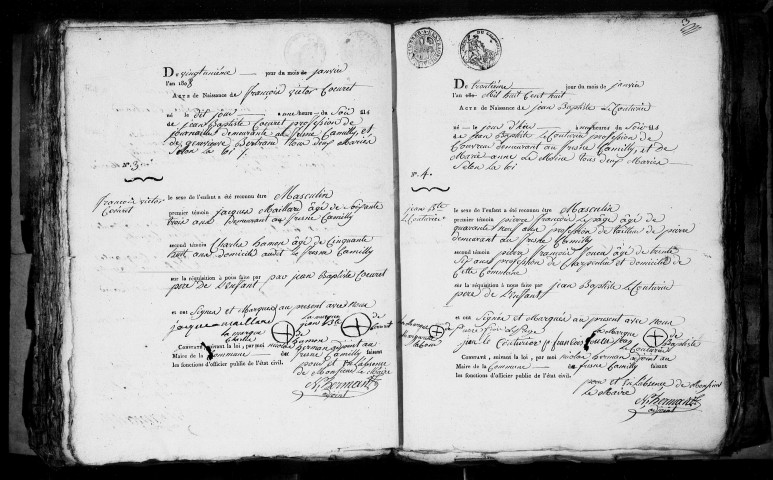 Du vingtunième jour du mois de janvier
l'an 1808
Acte de Naissance de françois victor Cœuret
né le dit jour à une heure du Soir fils
de jean Baptiste Cœuret profession de
journalier demeurante au fresne Camilly et
de genevieve Bertrane tous deux Mariés
Selon la loi
N°. 3.
françois victor
Cœuret
le sexe de l'enfant a été reconnu être Masculin
premier témoin jacques Maillard âgé de Soixante
trois ans demeurant au fresne Camilly
second témoin Charles hamon âgé de Cinquante
huit ans domicilié audit le fresne Camilly
sur la réquisition à nous faite par par jean Baptiste Cœuret
père de l'enfant
et ont Signés et Marqués au present avec nous
jacques maillard
la marque
jean Bte
de
Cœuret
la marque
Charles
de
hamon
Constaté, suivant la loi, par moi nicolas herman adjoint au
Maire de la Commune de fresne Camilly faisant
les fonctions d'officier public de l'état civil. pour et en l'absence
de Monsieur le Maire
N. herman
adjoint
3
Du trentième jour du mois de janvier
l'an Mil huit Cent huit
Acte de Naissance de jean Baptiste leCouturier
né le jour d'hier heures du Soir fils
de jean Baptiste leCouturier profession de
Couvreur demeurant au fresne Camilly, et de
Marie anne le Moine tous deux Mariés
Selon la loi
N°. 4.
jean Bte
leCouturier
le sexe de l'enfant a été reconnu être Masculin
premier témoin pierre françois le page âgé de
quarante neuf ans profession de tailleur de pierre
demeurant au fresne Camilly
second témoin pierre françois âgé de trente
Six ans profession de Charpentier et domicilié de
Cette Commune
sur la réquisition à nous faite par jean Baptiste leCouturier
père de l'enfant
et ont Signé et Marqué au present avec nous
la Marque
de
Baptiste
leCouturier
Constaté, suivant la loi, par moi nicolas herman adjoint au
Maire de la Commune de fresne Camilly faisant
les fonctions d'officier public de l'état civil.
pour et en l'absence de Monsieur
le Maire
N. herman
adjoint